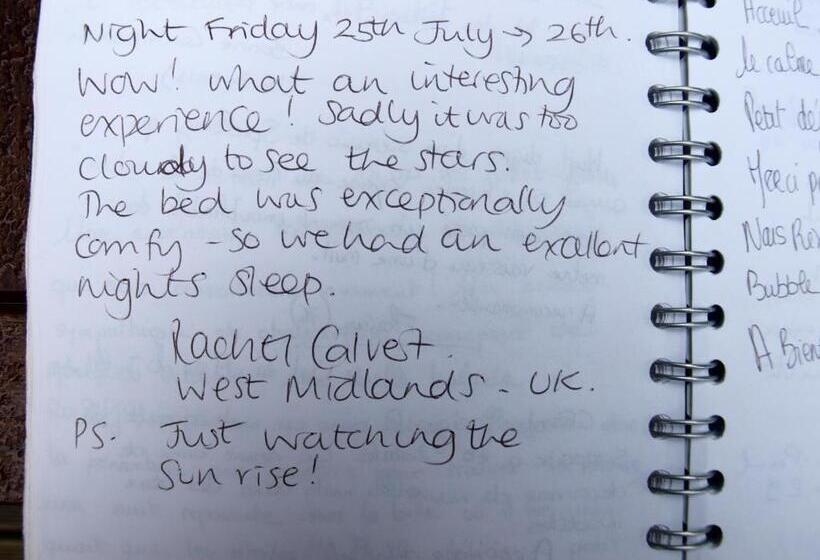 Night Friday 25th July → 26th.
Wow! what an interesting
experience! Sadly it was too
cloudy to see the stars.
The bed was exceptionally
comfy - so we had an excellent
nights sleep.
Rachel Calvert.
West Midlands - UK.
PS. Just watching the
Sun rise!
Acceuil
le calme
Petit dé
Merci p
Nous Re
Bubble
A Bien